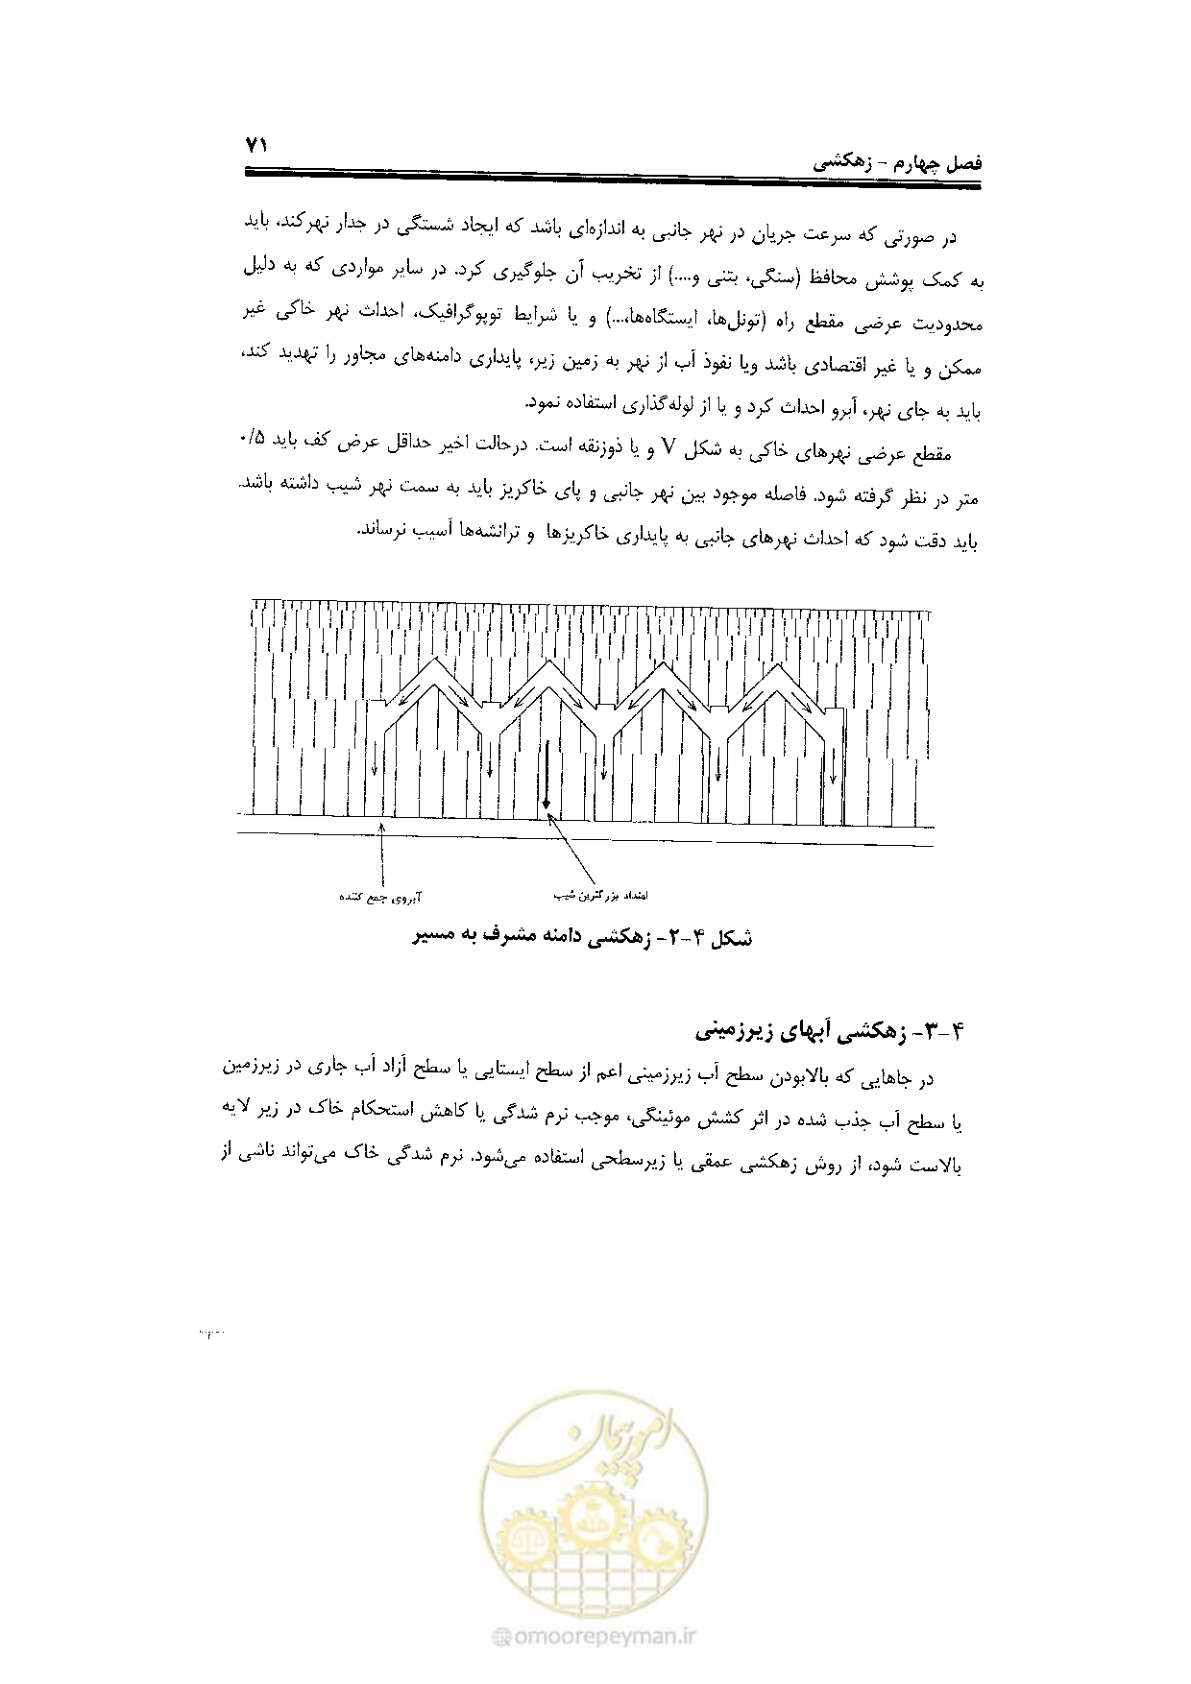 ۷۱
فصل چهارم - زهکشی
در صورتی که سرعت جریان در نهر جانبی به اندازه‌ای باشد که ایجاد شستگی در جدار نهرکند، باید
به کمک پوشش محافظ (سنگی، بتنی و....) از تخریب آن جلوگیری کرد. در سایر مواردی که به دلیل
محدودیت عرضی مقطع راه (تونل‌ها، ایستگاه‌ها،...) و یا شرایط توپوگرافیک، احداث نهر خاکی غیر
ممکن و یا غیر اقتصادی باشد ویا نفوذ آب از نهر به زمین زیر، پایداری دامنه‌های مجاور را تهدید کند،
باید به جای نهر، آبرو احداث کرد و یا از لوله‌گذاری استفاده نمود.
مقطع عرضی نهرهای خاکی به شکل V و یا ذوزنقه است. درحالت اخیر حداقل عرض کف باید ۰/۵
متر در نظر گرفته شود. فاصله موجود بین نهر جانبی و پای خاکریز باید به سمت نهر شیب داشته باشد.
باید دقت شود که احداث نهرهای جانبی به پایداری خاکریزها و ترانشه‌ها آسیب نرساند.
امتداد بزرگترین شیب
آبروی جمع کننده
شکل ۴-۲- زهکشی دامنه مشرف به مسیر
۴-۳- زهکشی آبهای زیرزمینی
در جاهایی که بالابودن سطح آب زیرزمینی اعم از سطح ایستایی یا سطح آزاد آب جاری در زیرزمین
یا سطح آب جذب شده در اثر کشش موئینگی، موجب نرم شدگی یا کاهش استحکام خاک در زیر لایه
بالاست شود، از روش زهکشی عمقی یا زیرسطحی استفاده می‌شود. نرم شدگی خاک می‌تواند ناشی از
امور پیمان
@omoorepeyman.ir